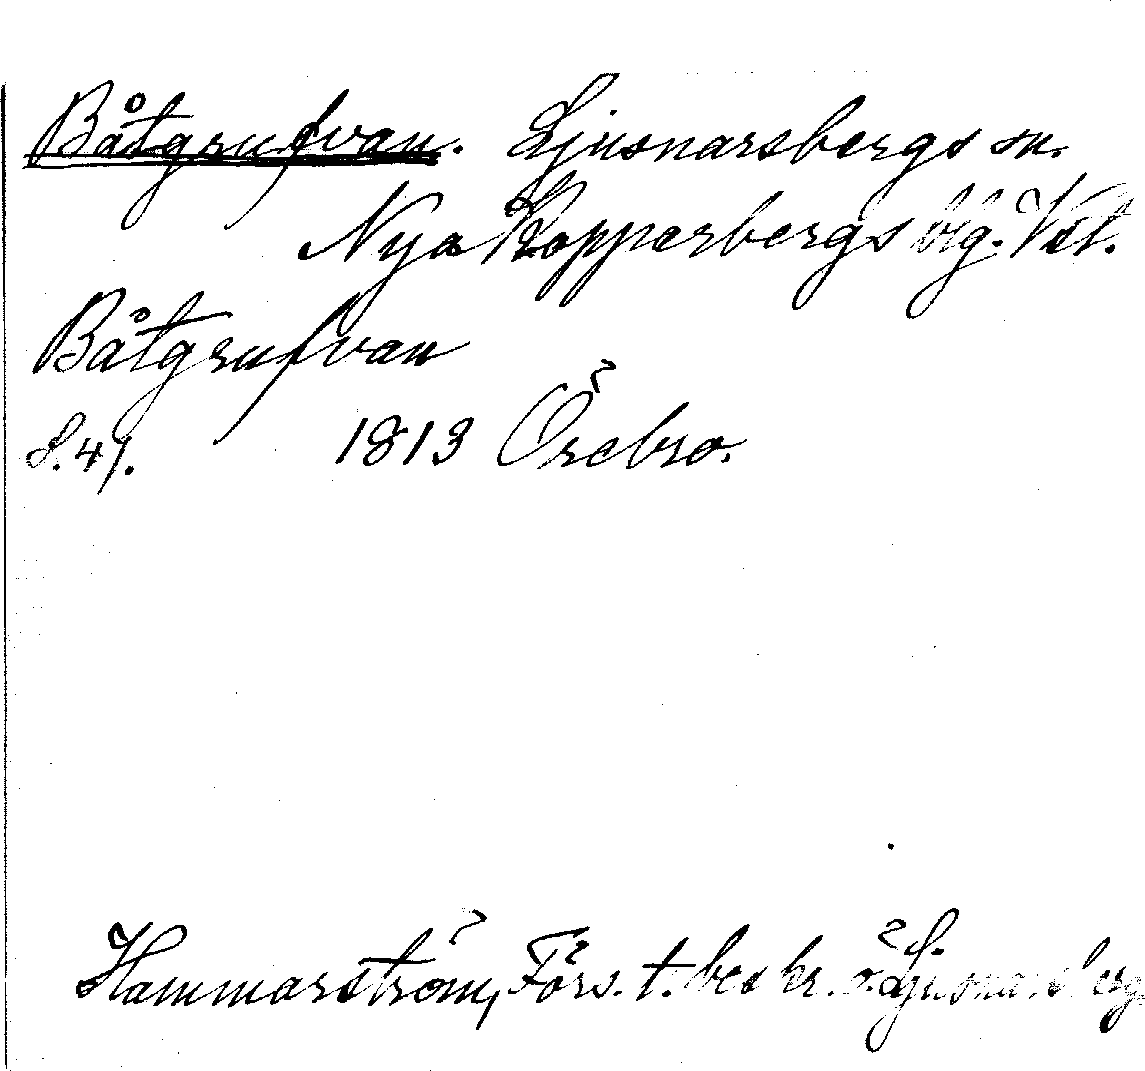 Båtgrufvan. Ljusnarsbergs sn.
Nya Kopperbergs blg. Vstl.
Båtgrufvan
S. 41. 1813 Örebro.
Hammarström, Förs. t. beskr. ö. Ljusnarsberg